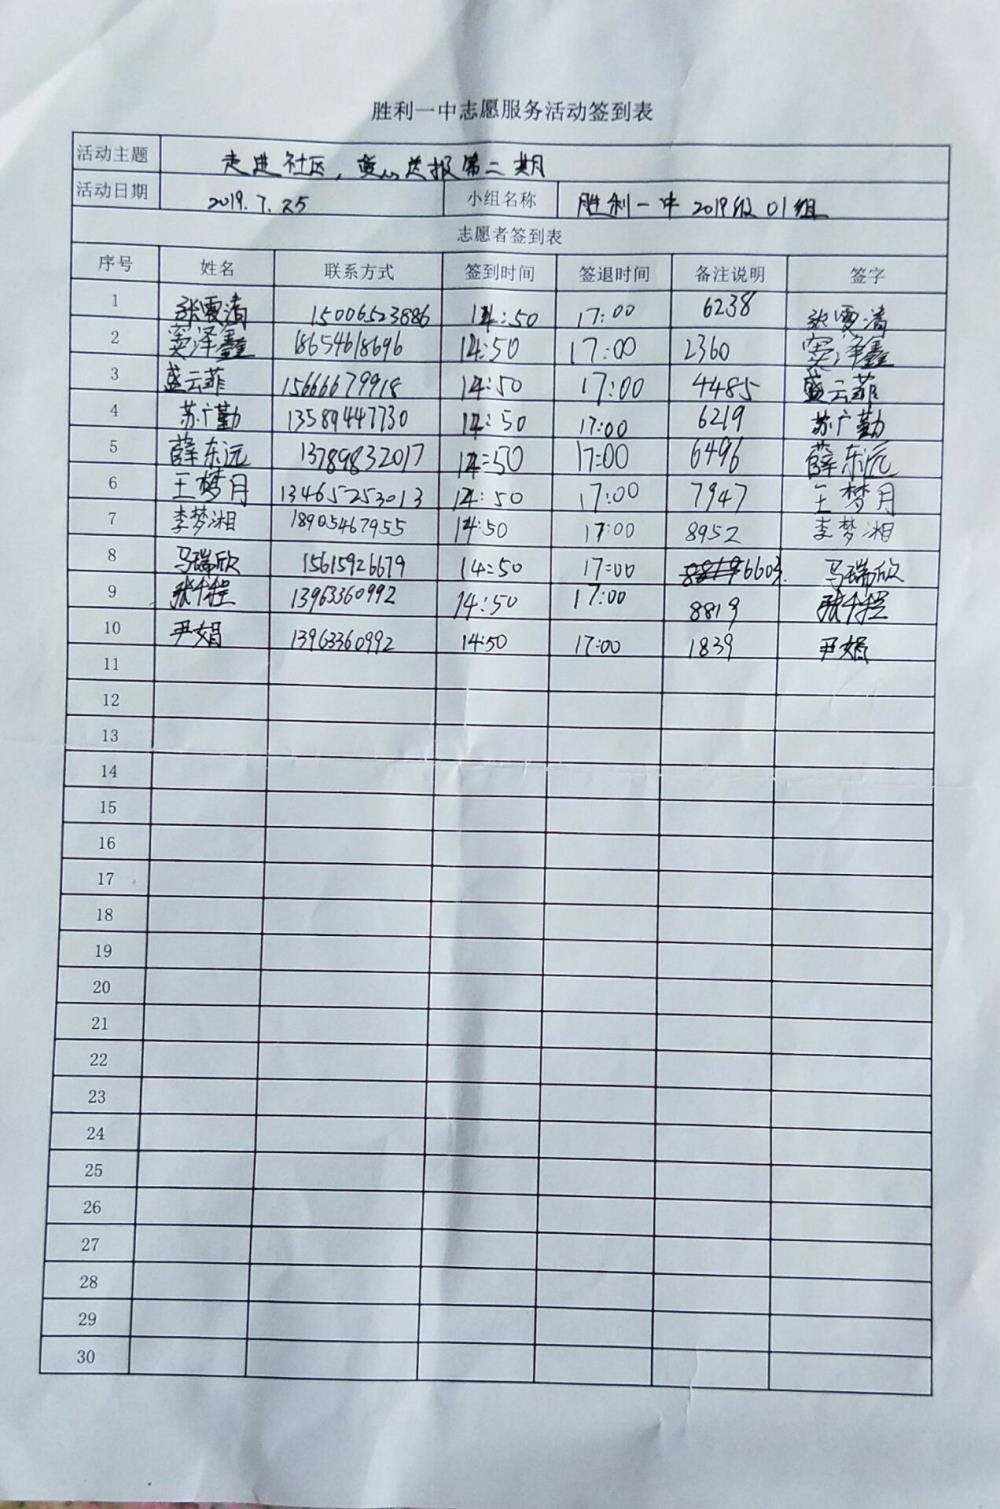 胜利一中志愿服务活动签到表
活动主题 走进社区，爱心送报第二期
活动日期 2019.7.25 小组名称 胜利一中2019级01组
志愿者签到表
序号 姓名 联系方式 签到时间 签退时间 备注说明 签字
1 张雯清 15006523886 14:50 17:00 6238 张雯清
2 窦泽鑫 18654618696 14:50 17:00 2360 窦泽鑫
3 盛云菲 15666679918 14:50 17:00 4485 盛云菲
4 苏广勤 13589447730 14:50 17:00 6219 苏广勤
5 薛东远 13789832017 14:50 17:00 6496 薛东远
6 王梦月 13465253013 14:50 17:00 7947 王梦月
7 李梦湘 18905467955 14:50 17:00 8952 李梦湘
8 马瑞欣 15615926679 14:50 17:00 6603. 马瑞欣
9 13963360992 14:50 17:00 8819
10 尹娟 13963360992 14:50 17:00 1839 尹娟
11
12
13
14
15
16
17
18
19
20
21
22
23
24
25
26
27
28
29
30